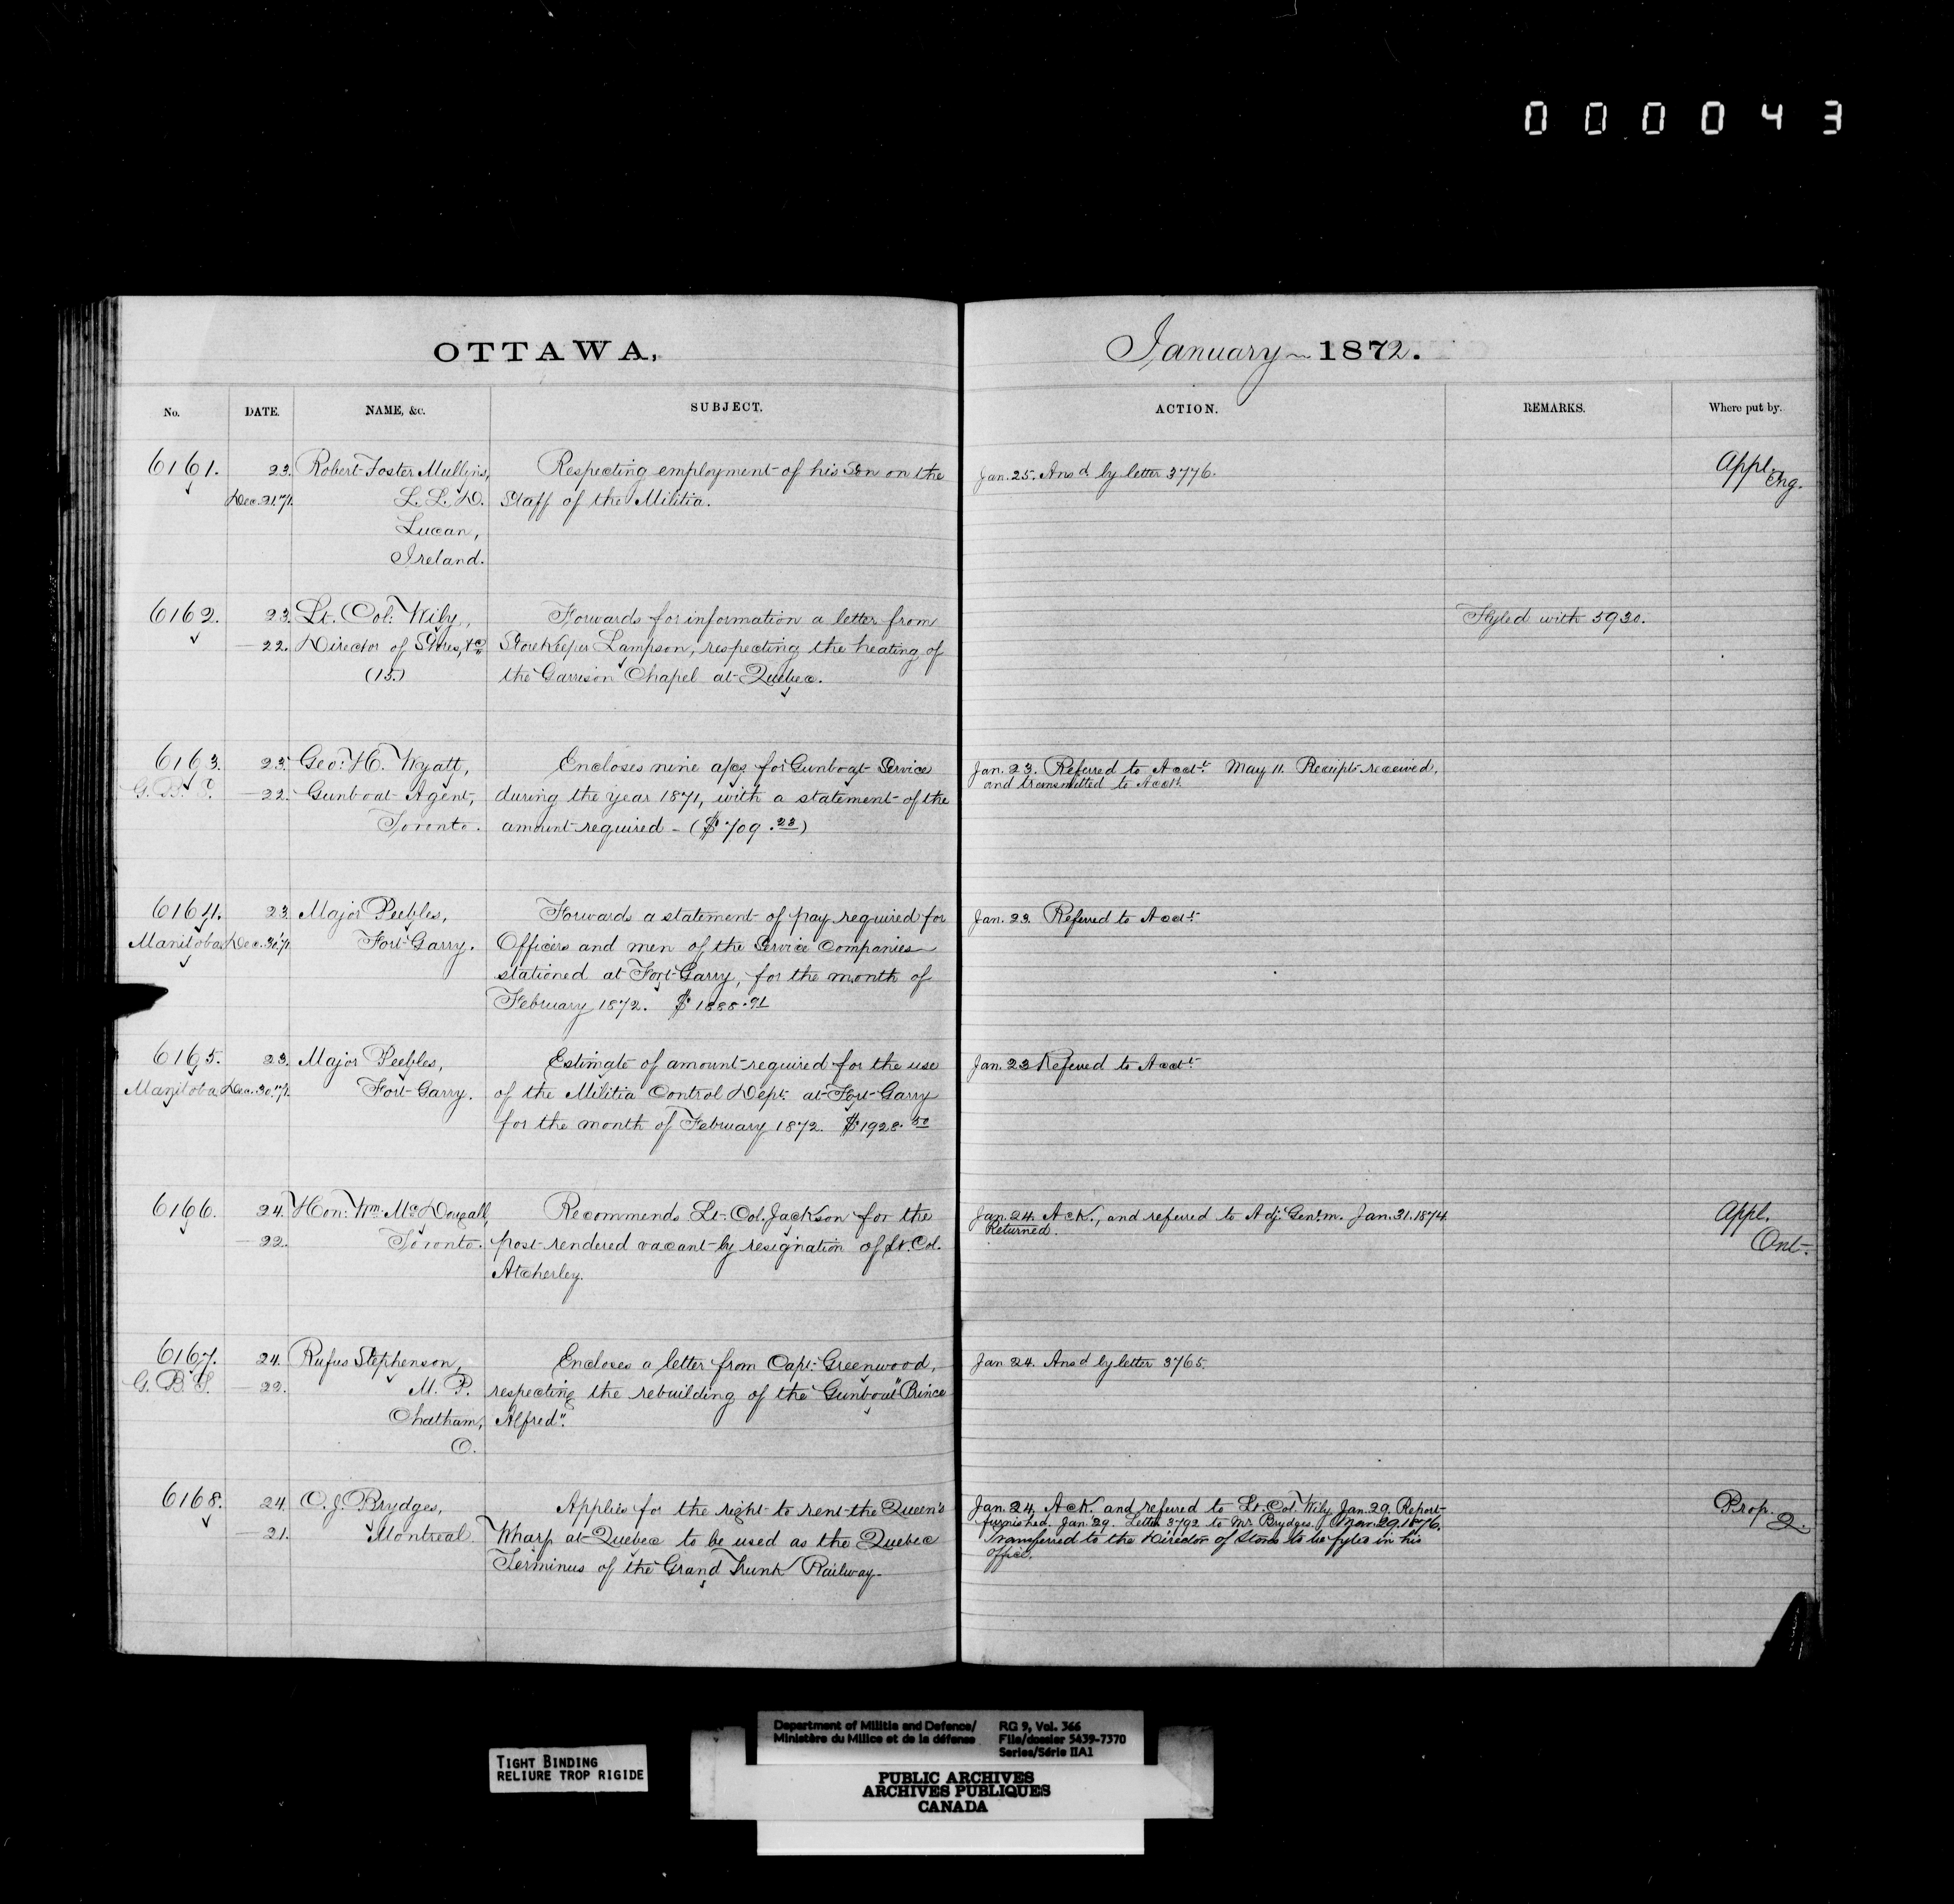 000043
OTTAWA,
January 1872.
No. DATE. NAME, &c. SUBJECT. ACTION. REMARKS. Where put by.
6161. 23. Robert Foster Mullins, Respecting employment of his Son on the Jan. 25. Ansd by letter 3776. Appl.
Dec. 21.71. L. L. D. Staff of the Militia. Eng.
Lucan,
Ireland.
6162. 23. Lt. Col: Wily, Forwards for information a letter from Fyled with 5930.
— 22. Director of Stores, &c. Storekeeper Lampson, respecting the heating of
(15.) the Garrison Chapel at Quebec.
6163. 23. Geo: H. Wyatt, Encloses nine a/cs for Gunboat Service Jan. 23. Referred to Acct. May 11. Receipts received,
G. B. S. — 22. Gunboat Agent, during the year 1871, with a statement of the and transmitted to Acct.
Toronto. amount required - ($709.23)
6164. 23. Major Peebles, Forwards a statement of pay required for Jan. 23. Referred to Acct.
Manitoba Dec. 30.71. Fort Garry. Officers and men of the Service Companies
stationed at Fort Garry, for the month of
February 1872. $1888.91
6165. 23. Major Peebles, Estimate of amount required for the use Jan. 23 Referred to Acct.
Manitoba Dec. 30.71. Fort Garry. of the Militia Control Dept. at Fort Garry
for the month of February 1872. $1928.50
6166. 24. Hon: Wm. McDougall, Recommends Lt. Col. Jackson for the Jan. 24. Ack., and referred to Adj. Genl. m. Jan. 31. 1874. Appl.
— 22. Toronto. post rendered vacant by resignation of Lt. Col. Returned. Ont.
Atcherley.
6167. 24. Rufus Stephenson, Encloses a letter from Capt. Greenwood, Jan 24. Ansd by letter 3765.
G. B. S. — 22. M. P. respecting the rebuilding of the Gunboat "Prince
Chatham, Alfred".
O.
6168. 24. C. J. Brydges, Applies for the right to rent the Queen's Jan. 24. Ack. and referred to Lt. Col. Wily. Jan. 29. Report Prop.
— 21. Montreal. Wharf at Quebec to be used as the Quebec furnished. Jan. 29. Letter 3792 to Mr Brydges. Nov. 29. 1876. Q.
Terminus of the Grand Trunk Railway. Transferred to the Director of Stores to be fyled in his
office.
Department of Militia and Defence/ RG 9, Vol. 366
Ministère du Milice et de la défense File/dossier 5439-7370
Series/Série IIA1
TIGHT BINDING
RELIURE TROP RIGIDE
PUBLIC ARCHIVES
ARCHIVES PUBLIQUES
CANADA